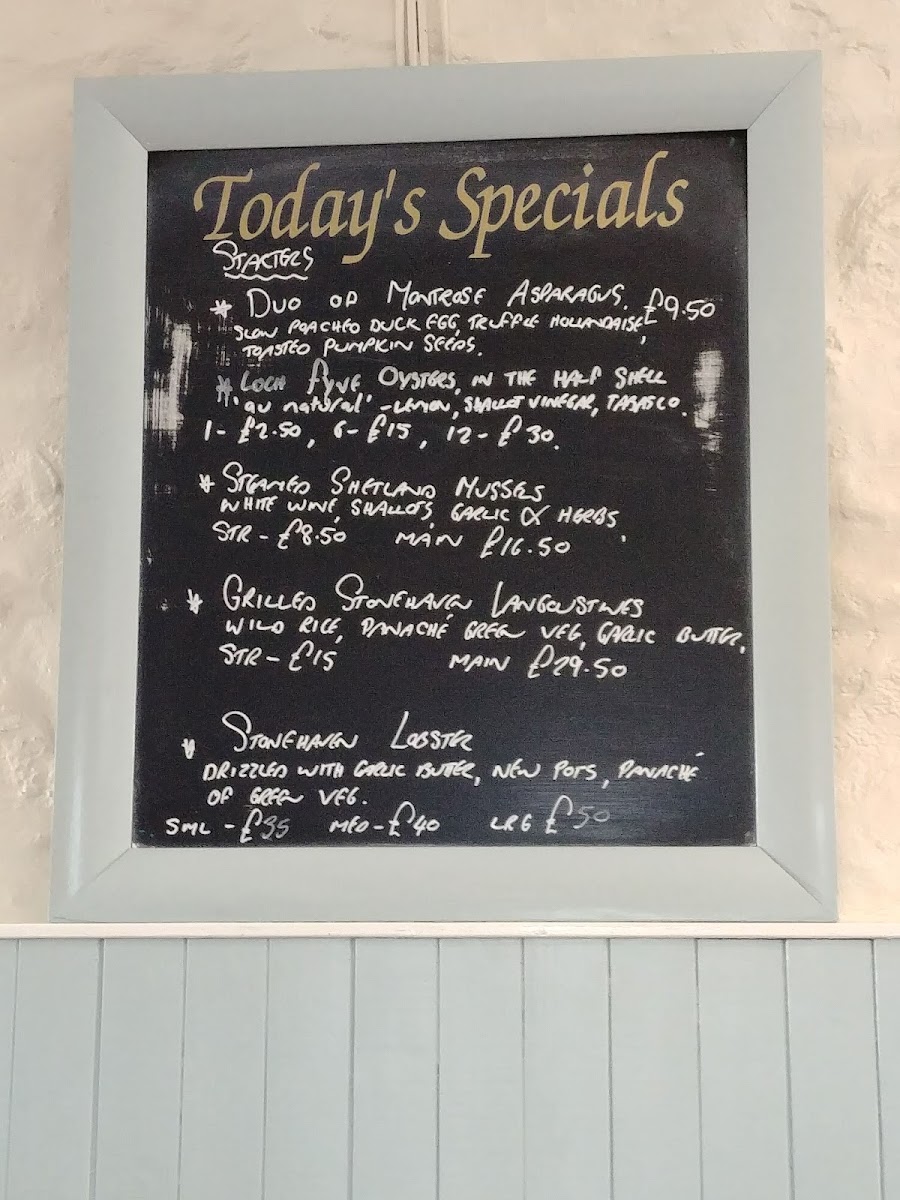 Today's Specials
STARTERS
* DUO OF MONTROSE ASPARAGUS, £9.50
SLOW POACHED DUCK EGG, TRUFFLE HOLLANDAISE,
TOASTED PUMPKIN SEEDS.
* LOCH FYNE OYSTERS, IN THE HALF SHELL
'au natural' - LEMON, SHALLOT VINEGAR, TABASCO.
1 - £2.50, 6 - £15, 12 - £30.
* STEAMED SHETLAND MUSSELS
WHITE WINE, SHALLOTS, GARLIC & HERBS.
STR - £8.50 MAIN £16.50
* GRILLED STONEHAVEN LANGOUSTINES
WILD RICE, PANACHÉ GREEN VEG, GARLIC BUTTER.
STR - £15 MAIN £29.50
* STONEHAVEN LOBSTER
DRIZZLED WITH GARLIC BUTTER, NEW POTS, PANACHÉ
OF GREEN VEG.
SML - £35 MED - £40 LRG £50